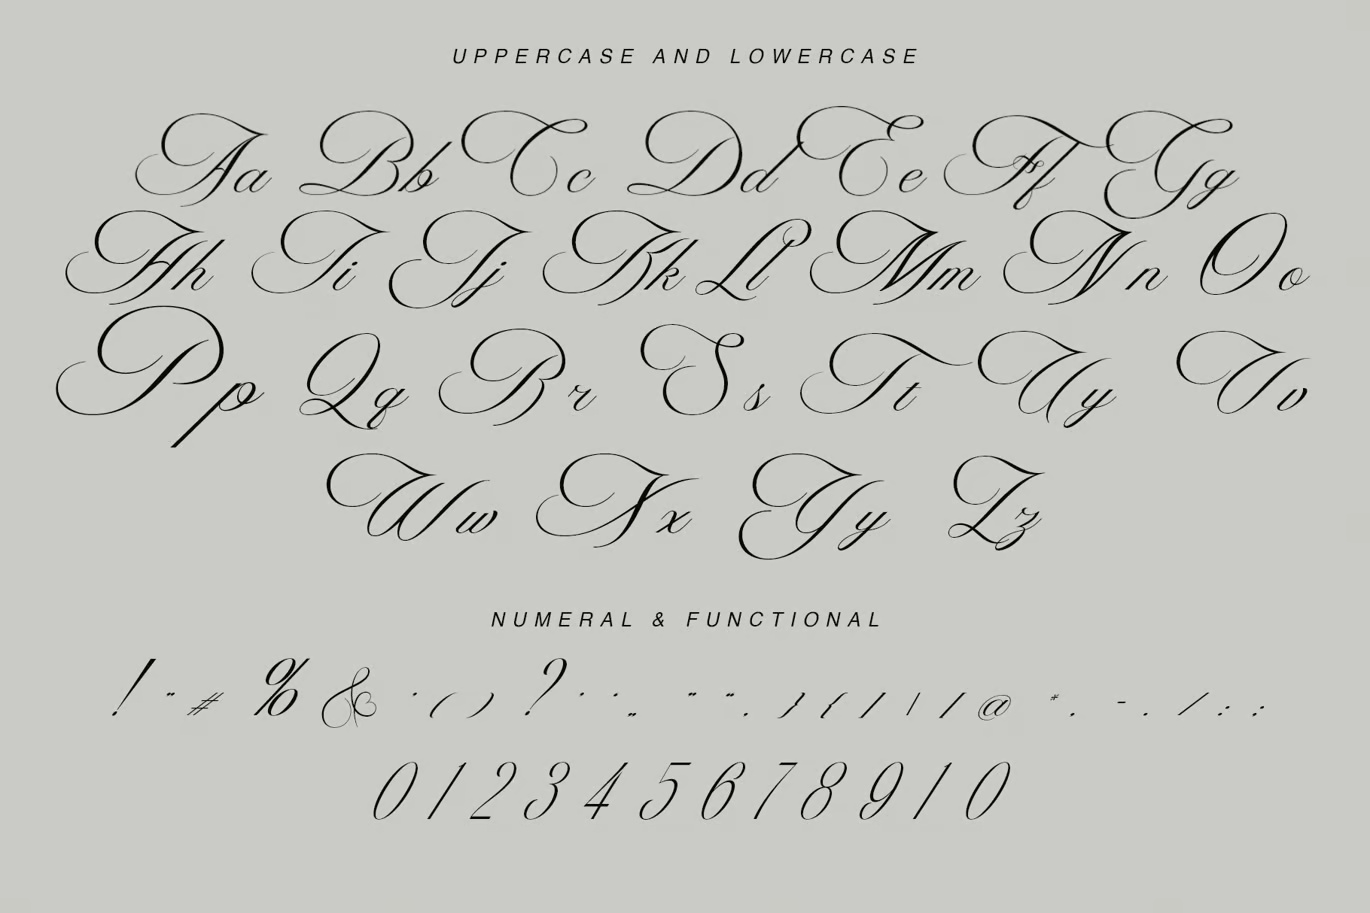 UPPERCASE AND LOWERCASE
Aa Bb Cc Dd Ee Ff Gg
Hh Ii Jj Kk Ll Mm Nn Oo
Pp Qq Rr Ss Tt Uy Vv
Ww Xx Yy Zz
NUMERAL & FUNCTIONAL
! " # % & ' ( ) ? @ * . - . / : :
0 1 2 3 4 5 6 7 8 9 1 0